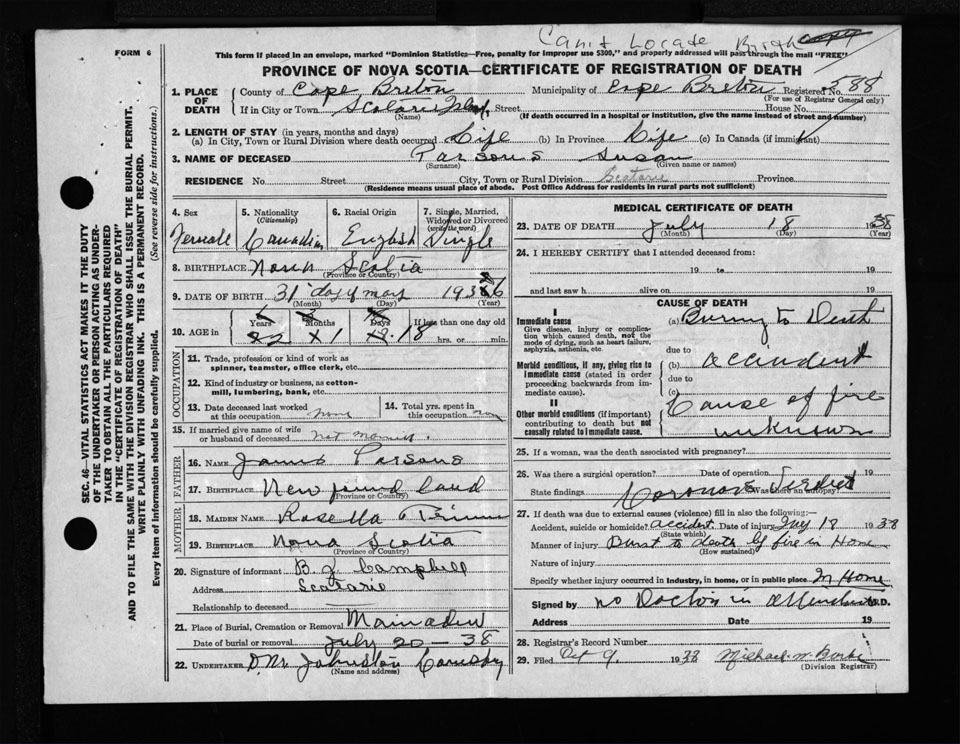 Can't Locate Birth copy
FORM 6
This form if placed in an envelope, marked "Dominion Statistics—Free, penalty for improper use $300," and properly addressed will pass through the mail "FREE"
PROVINCE OF NOVA SCOTIA—CERTIFICATE OF REGISTRATION OF DEATH
1. PLACE OF DEATH
County of Cape Breton Municipality of Cape Breton Registered No. 588
(For use of Registrar General only)
If in City or Town Scatarie Street House No.
(Name) (If death occurred in a hospital or institution, give the name instead of street and number)
2. LENGTH OF STAY (in years, months and days)
(a) In City, Town or Rural Division where death occurred Life (b) In Province Life (c) In Canada (if immigrant)
3. NAME OF DECEASED Parsons Susan
(Surname) (Given name or names)
RESIDENCE No. Street City, Town or Rural Division Scatarie Province
(Residence means usual place of abode. Post Office Address for residents in rural parts not sufficient)
4. Sex Female
5. Nationality (Citizenship) Canadian
6. Racial Origin English
7. Single, Married, Widowed or Divorced (write the word) Single
8. BIRTHPLACE Nova Scotia
(Province or Country)
9. DATE OF BIRTH 31 day of may 1936
(Month) (Day) (Year)
10. AGE in Years Months Days If less than one day old
2 1 18 hrs. or min.
OCCUPATION
11. Trade, profession or kind of work as spinner, teamster, office clerk, etc.
12. Kind of industry or business, as cotton-mill, lumbering, bank, etc.
13. Date deceased last worked at this occupation none
14. Total yrs. spent in this occupation
15. If married give name of wife or husband of deceased not married.
FATHER
16. NAME James Parsons
17. BIRTHPLACE New found land
(Province or Country)
MOTHER
18. MAIDEN NAME Rosella
19. BIRTHPLACE Nova Scotia
(Province or Country)
20. Signature of informant B. J. Campbell
Address Scatarie
Relationship to deceased
21. Place of Burial, Cremation or Removal Mainadieu
Date of burial or removal July 20 – 38
22. UNDERTAKER Johnston
(Name and address)
MEDICAL CERTIFICATE OF DEATH
23. DATE OF DEATH July 18 1938
(Month) (Day) (Year)
24. I HEREBY CERTIFY that I attended deceased from:
19 to 19
and last saw h alive on 19
CAUSE OF DEATH
I
Immediate cause
Give disease, injury or complication which caused death, not the mode of dying, such as heart failure, asphyxia, asthenia, etc.
(a) Burning to Death
due to
Morbid conditions, if any, giving rise to immediate cause (stated in order proceeding backwards from immediate cause).
(b) accident
due to
(c)
II
Other morbid conditions (if important) contributing to death but not causally related to immediate cause.
Cause of fire
unknown
25. If a woman, was the death associated with pregnancy?
26. Was there a surgical operation? Date of operation 19
State findings Was there an autopsy?
Coroners Verdict
27. If death was due to external causes (violence) fill in also the following:—
Accident, suicide or homicide? accident Date of injury July 18 1938
(State which)
Manner of injury Burnt to death by fire in Home
(How sustained)
Nature of injury
Specify whether injury occurred in industry, in home, or in public place In Home
Signed by no Doctor in attendance M.D.
Address Date 19
28. Registrar's Record Number
29. Filed Oct 9 1938 Michael W. Burke
(Division Registrar)
SEC. 46—VITAL STATISTICS ACT MAKES IT THE DUTY
OF THE UNDERTAKER OR PERSON ACTING AS UNDER-
TAKER TO OBTAIN ALL THE PARTICULARS REQUIRED
IN THE "CERTIFICATE OF REGISTRATION OF DEATH"
AND TO FILE THE SAME WITH THE DIVISION REGISTRAR WHO SHALL ISSUE THE BURIAL PERMIT.
WRITE PLAINLY WITH UNFADING INK. THIS IS A PERMANENT RECORD.
Every item of information should be carefully supplied. (See reverse side for instructions.)